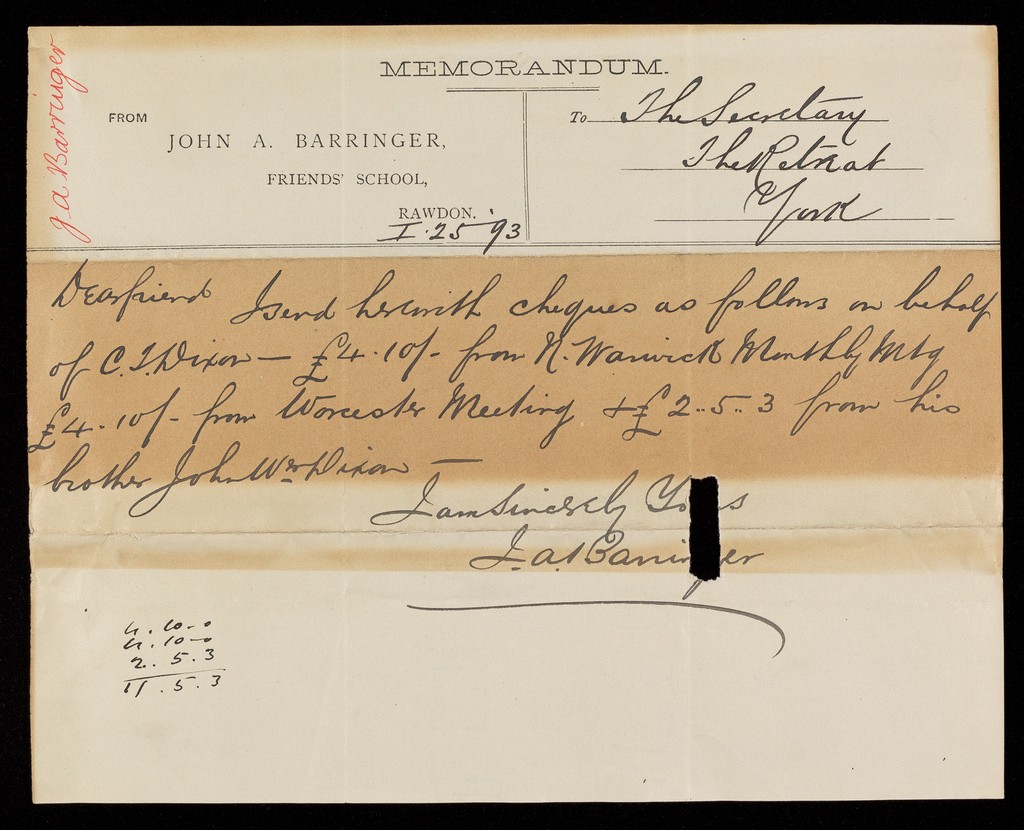 J. A. Barringer
MEMORANDUM.
FROM
JOHN A. BARRINGER,
FRIENDS' SCHOOL,
RAWDON.
I. 25 '93
To The Secretary
The Retreat
York
Dear friend I send herewith cheques as follows on behalf
of C. I. Dixon — £4. 10/- from N. Warwick Monthly Mtg
£4. 10/- from Worcester Meeting + £2..5..3 from his
brother John Wm Dixon —
I am Sincerely Yours
J. A. Barringer
4. 10-0
4. 10-0
2. 5. 3
11. 5. 3